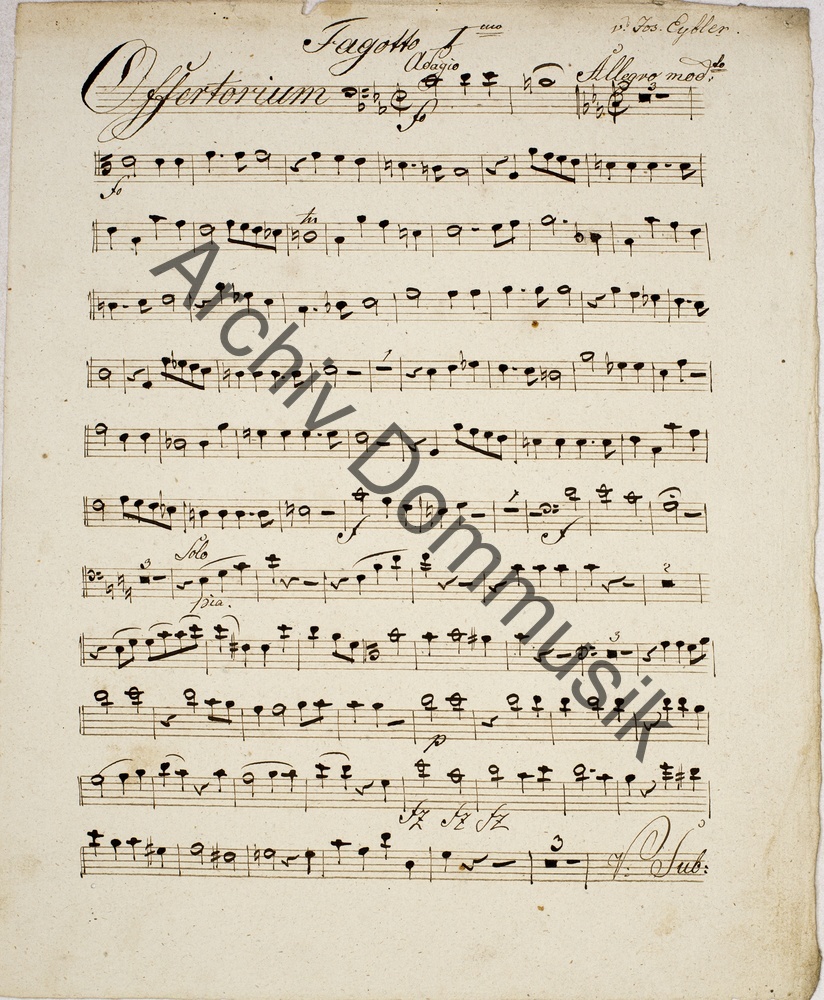 Fagotto I^mo v: Jos. Eybler.
Adagio Allegro mod:to
Offertorium 3
fo
fo
tr
1
f 1 f
3 Solo 2
pia.
3
p
fz fz fz
3 V: Sub:
Archiv Dommusik